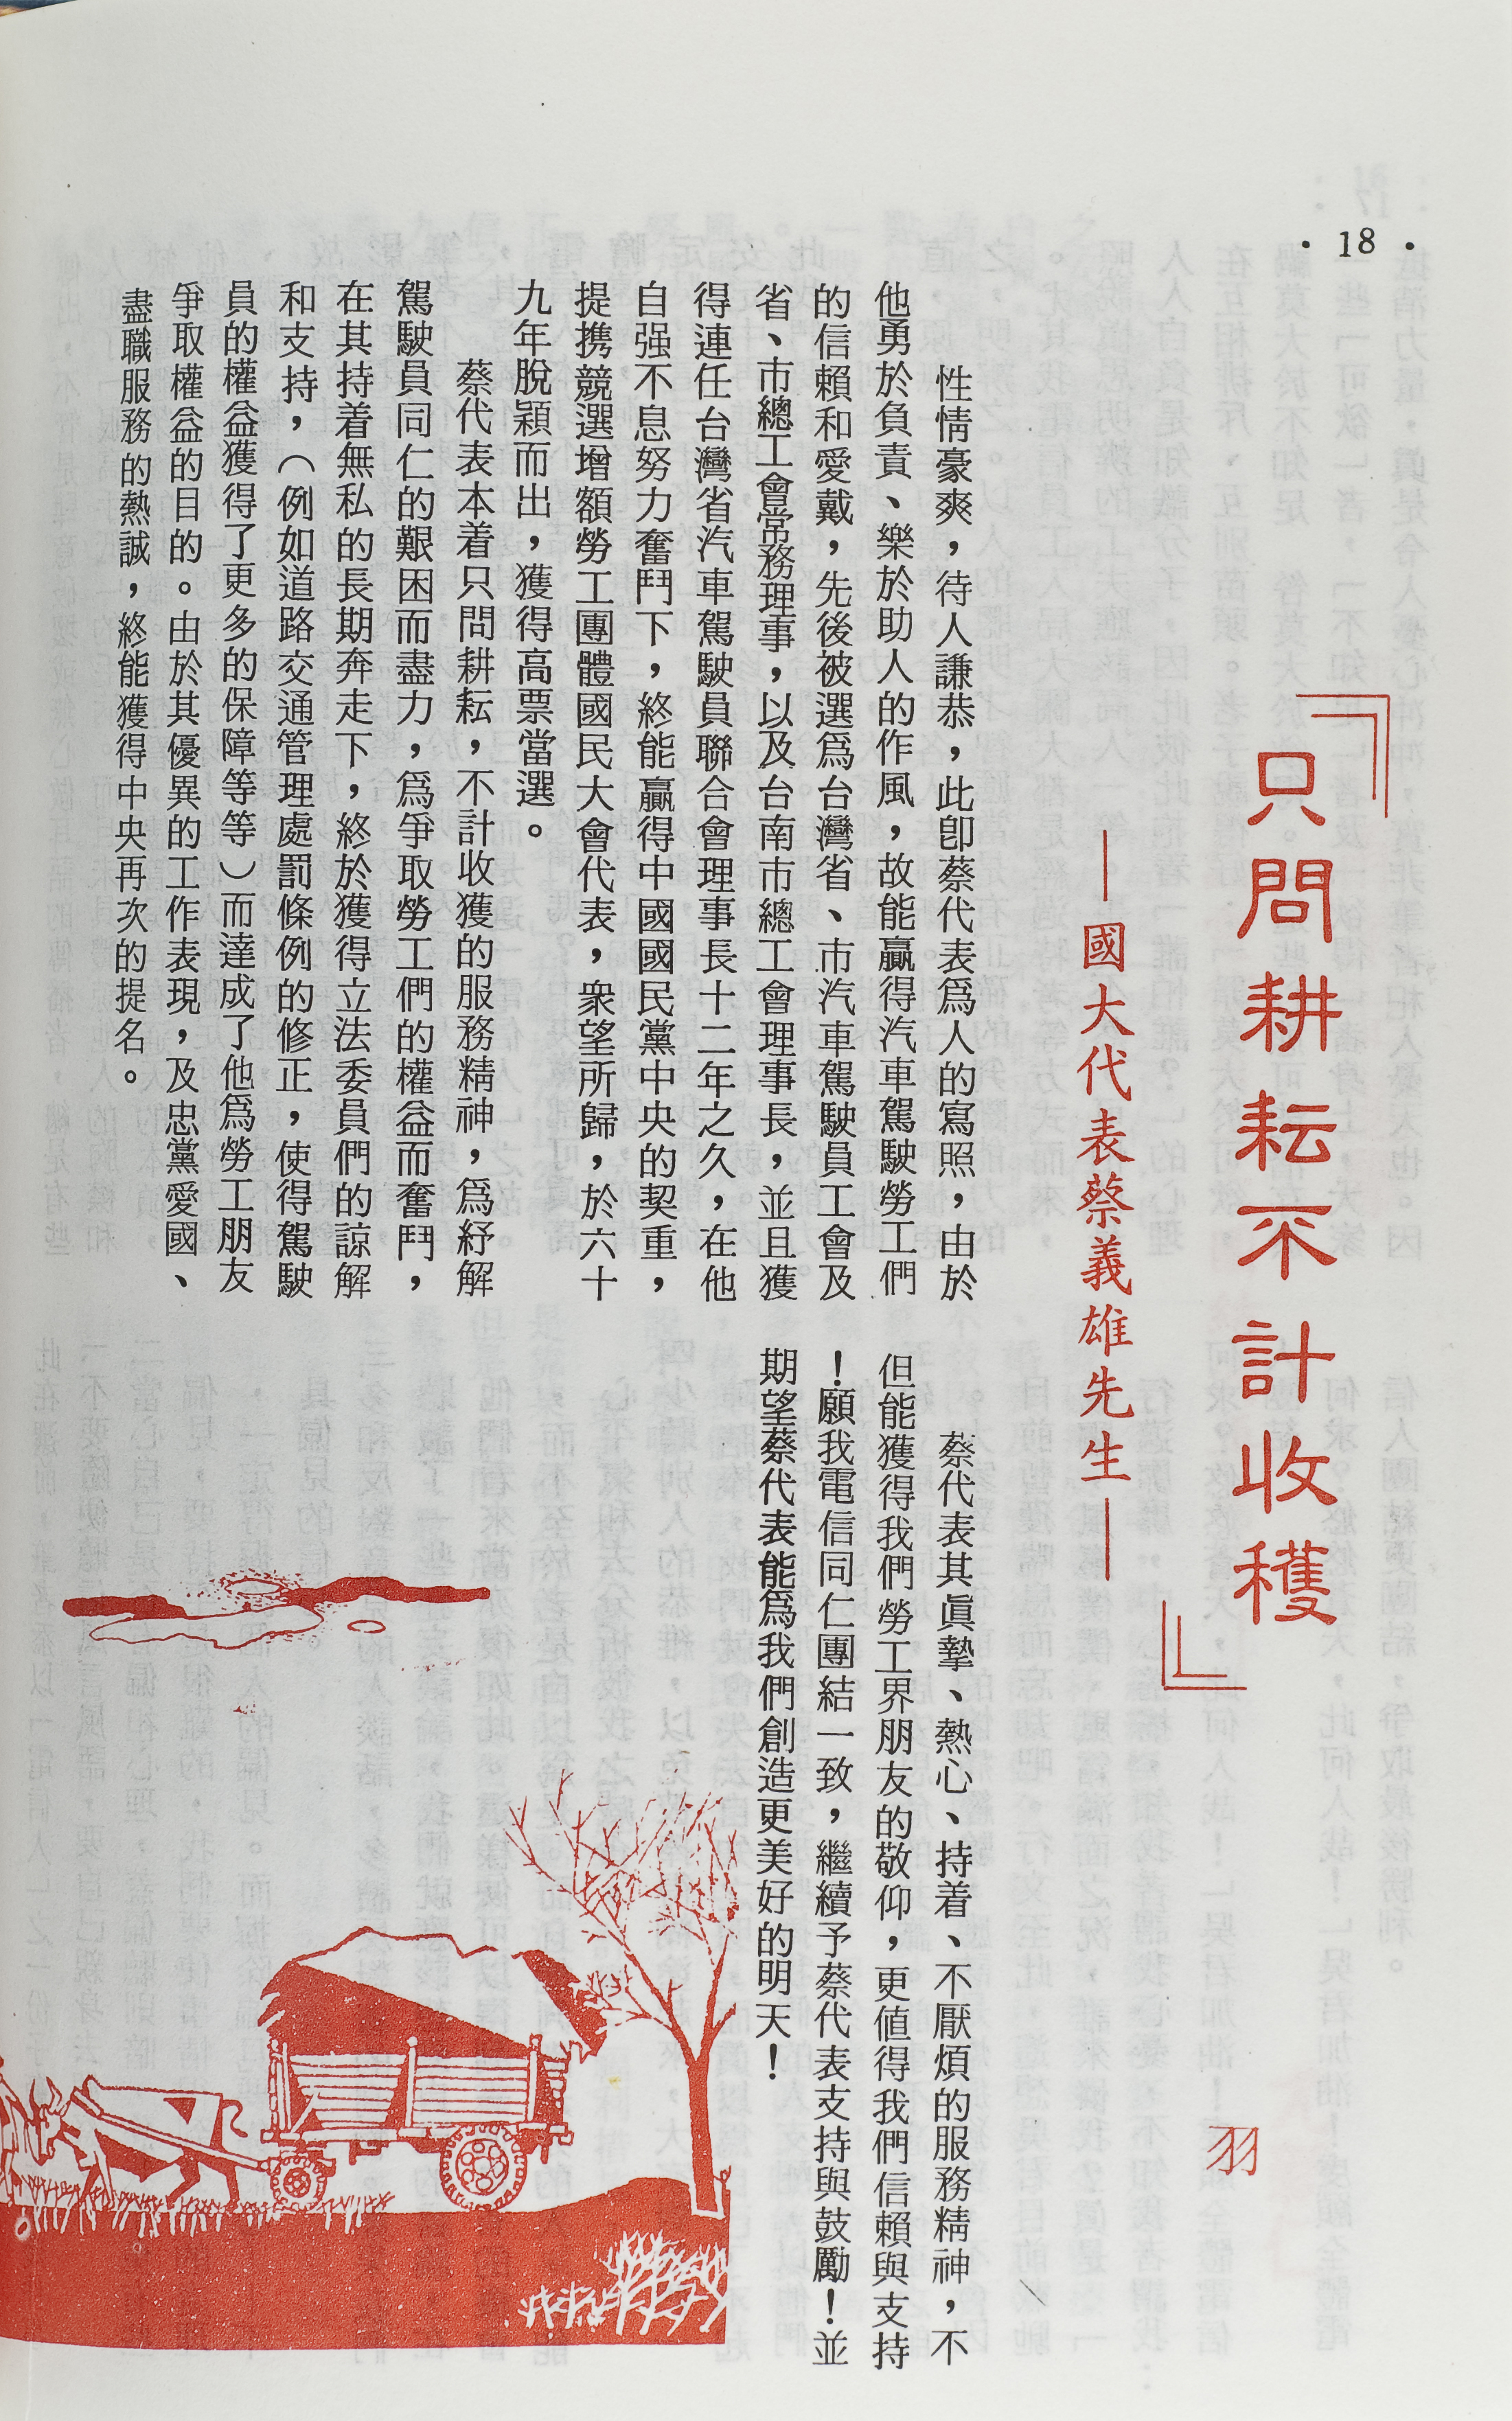 · 18 ·
『只問耕耘不計收穫』
——國大代表蔡義雄先生——
羽
性情豪爽，待人謙恭，此卽蔡代表爲人的寫照，由於
他勇於負責、樂於助人的作風，故能贏得汽車駕駛勞工們
的信賴和愛戴，先後被選爲台灣省、市汽車駕駛員工會及
省、市總工會常務理事，以及台南市總工會理事長，並且獲
得連任台灣省汽車駕駛員聯合會理事長十二年之久，在他
自强不息努力奮鬥下，終能贏得中國國民黨中央的契重，
提携競選增額勞工團體國民大會代表，衆望所歸，於六十
九年脫穎而出，獲得高票當選。
蔡代表本着只問耕耘，不計收獲的服務精神，爲紓解
駕駛員同仁的艱困而盡力，爲爭取勞工們的權益而奮鬥，
在其持着無私的長期奔走下，終於獲得立法委員們的諒解
和支持，（例如道路交通管理處罰條例的修正，使得駕駛
員的權益獲得了更多的保障等等）而達成了他爲勞工朋友
爭取權益的目的。由於其優異的工作表現，及忠黨愛國、
盡職服務的熱誠，終能獲得中央再次的提名。
蔡代表其眞摯、熱心、持着、不厭煩的服務精神，不
但能獲得我們勞工界朋友的敬仰，更值得我們信賴與支持
！願我電信同仁團結一致，繼續予蔡代表支持與鼓勵！並
期望蔡代表能爲我們創造更美好的明天！